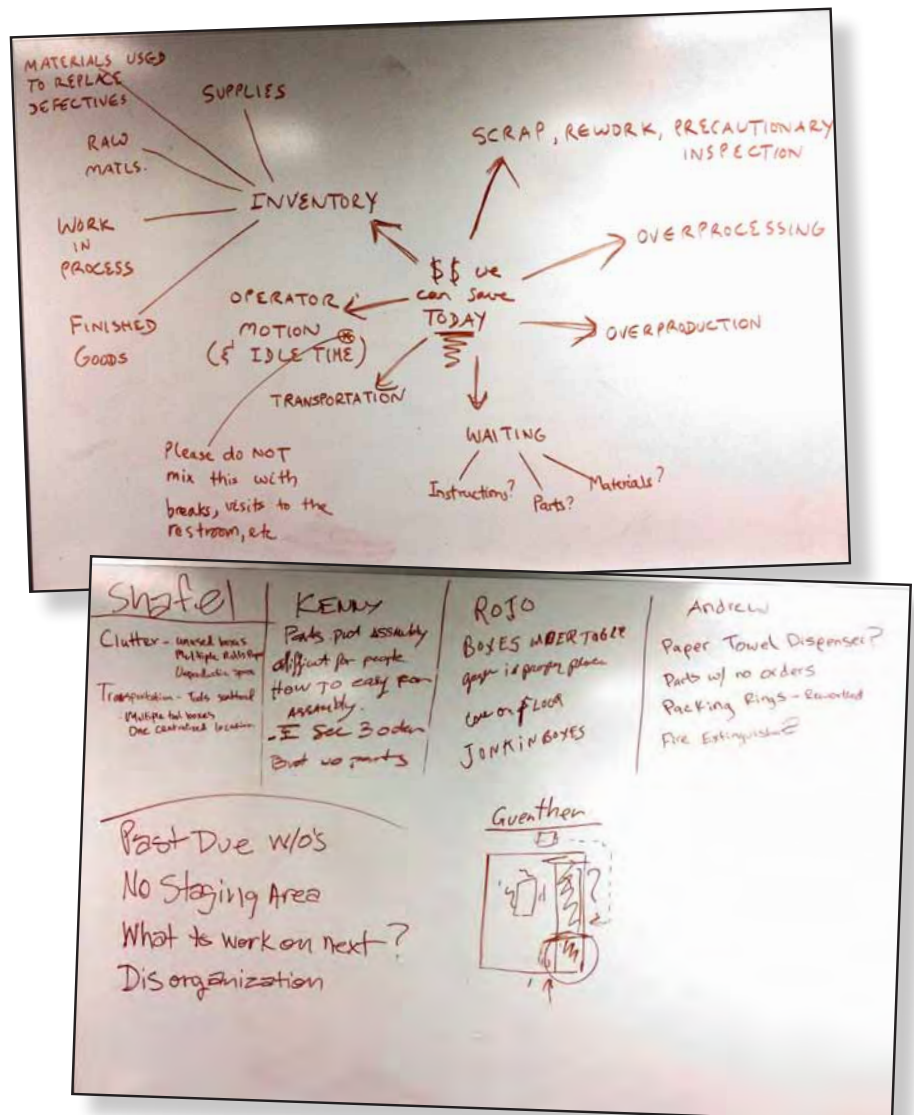 MATERIALS USED
TO REPLACE
DEFECTIVES
SUPPLIES
RAW
MATLS.
WORK
IN
PROCESS
FINISHED
GOODS
INVENTORY
SCRAP, REWORK, PRECAUTIONARY
INSPECTION
OVERPROCESSING
OVERPRODUCTION
$$ we
can save
TODAY
OPERATOR
MOTION
(& IDLE TIME)
TRANSPORTATION
Please do NOT
mix this with
breaks, visits to the
restroom, etc
WAITING
Instructions?
Parts?
Materials?
Shafel
Clutter - unused boxes
Multiple Rolls
Unproductive space
Transportation - Tools scattered
- Multiple tool boxes
One centralized location
KENNY
Parts Assembly
difficult for people
HOW TO easy
ASSEMBLY.
- I See 3 orden
But no parts
ROJO
BOXES UNDER TABLE
proper place
on FLOOR
JONK IN BOXES
Andrew
Paper Towel Dispenser?
Parts w/ no orders
Packing Rings - Reworked
Fire Extinguisher?
Past Due w/o's
No Staging Area
What to work on next?
Disorganization
Guenther